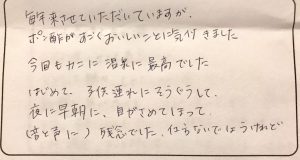 毎年来させていただいていますが、
ポン酢がすごくおいしいことに気付きました
今回もカニに温泉に最高でした
はじめて、子供連れにそうぐうして、
夜に早朝に、目がさめてしまって
(音と声に) 残念でした、仕方ないでしょうけれど